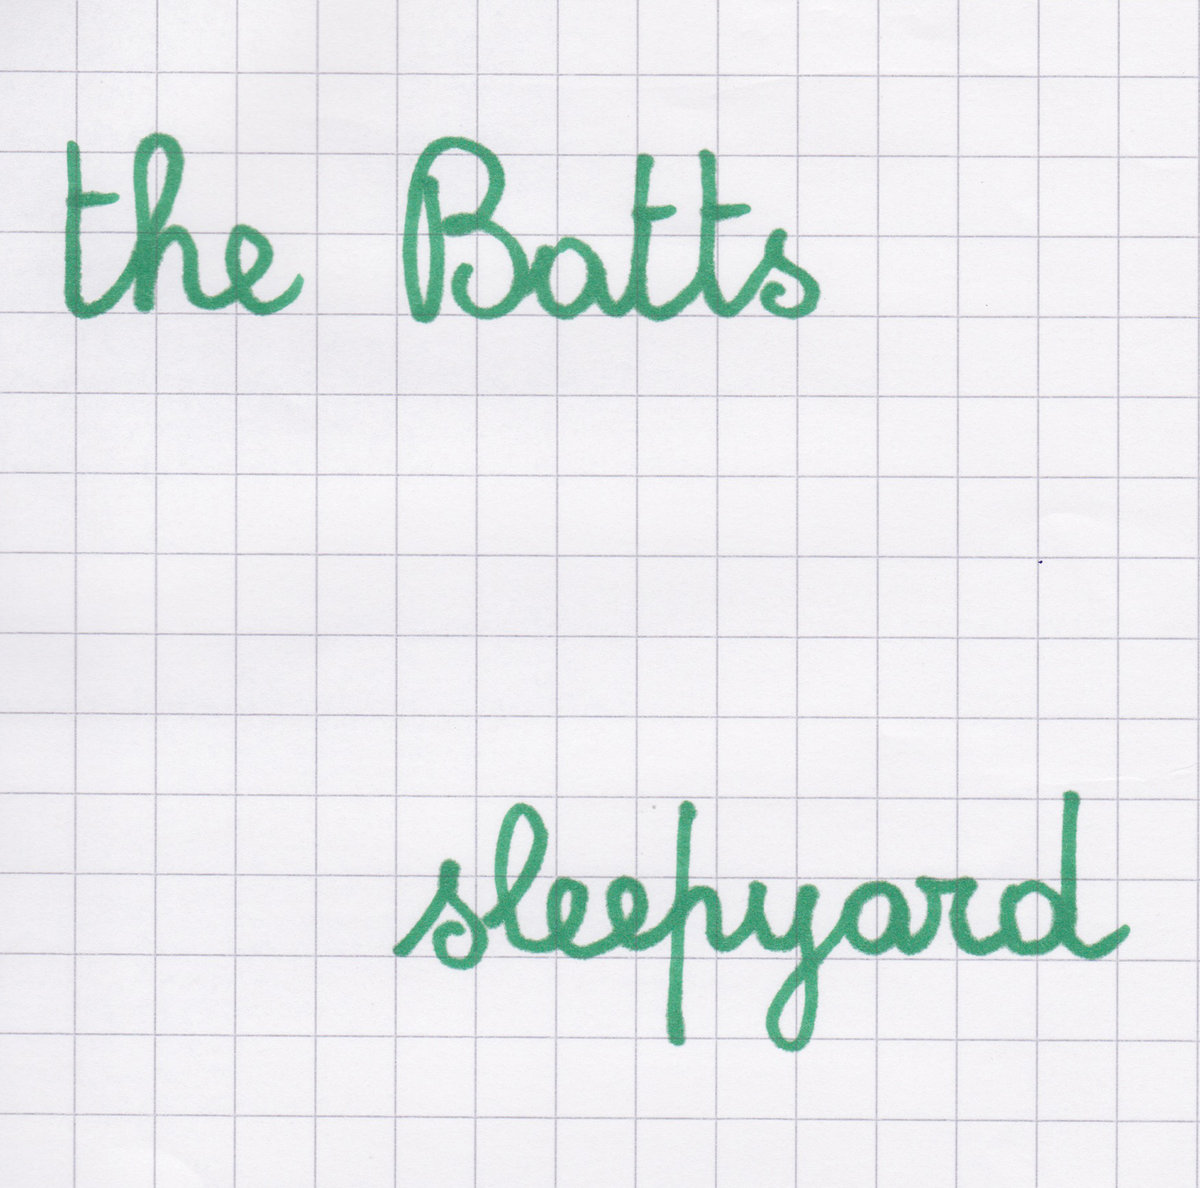 the Batts
sleepyard